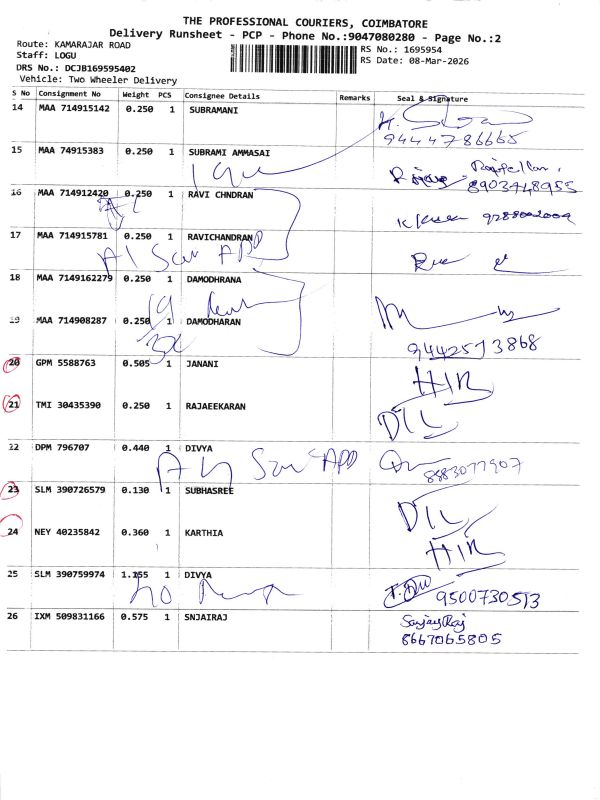 THE PROFESSIONAL COURIERS, COIMBATORE
Delivery Runsheet - PCP - Phone No.:9047080280 - Page No.:2
Route: KAMARAJAR ROAD
Staff: LOGU
DRS No.: DCJB169595402
Vehicle: Two Wheeler Delivery
RS No.: 1695954
RS Date: 08-Mar-2026
S No Consignment No Weight PCS Consignee Details Remarks Seal & Signature
14 MAA 714915142 0.250 1 SUBRAMANI
9444786665
15 MAA 74915383 0.250 1 SUBRAMI AMMASAI
8903748955
16 MAA 714912420 0.250 1 RAVI CHNDRAN
17 MAA 714915781 0.250 1 RAVICHANDRAN
18 MAA 7149162279 0.250 1 DAMODHRANA
19 MAA 714908287 0.250 1 DAMODHARAN
9442573868
20 GPM 5588763 0.505 1 JANANI
HIR
21 TMI 30435390 0.250 1 RAJAEEKARAN
DIL
22 DPM 796707 0.440 1 DIVYA
8883077907
23 SLM 390726579 0.130 1 SUBHASREE
DIL
24 NEY 40235842 0.360 1 KARTHIA
HIR
25 SLM 390759974 1.155 1 DIVYA
9500730513
26 IXM 509831166 0.575 1 SNJAIRAJ
Sanjay Raj
8667065805